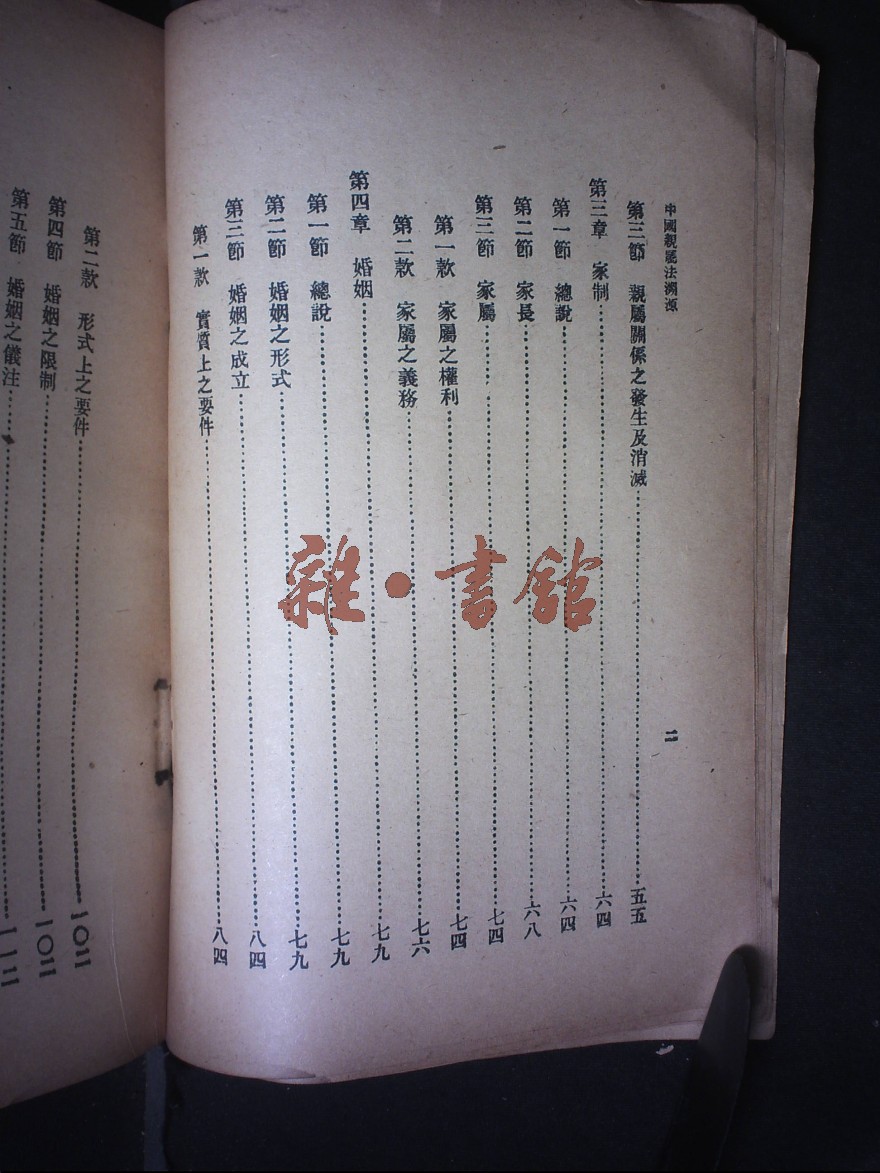 中國親屬法溯源
二
第三節　親屬關係之發生及消滅……五五
第三章　家制……六四
第一節　總說……六四
第二節　家長……六八
第三節　家屬……七四
第一款　家屬之權利……七四
第二款　家屬之義務……七六
第四章　婚姻……七九
第一節　總說……七九
第二節　婚姻之形式……七九
第三節　婚姻之成立……八四
第一款　實質上之要件……八四
第二款　形式上之要件……一〇二
第四節　婚姻之限制……一〇二
第五節　婚姻之儀注
雜·書館